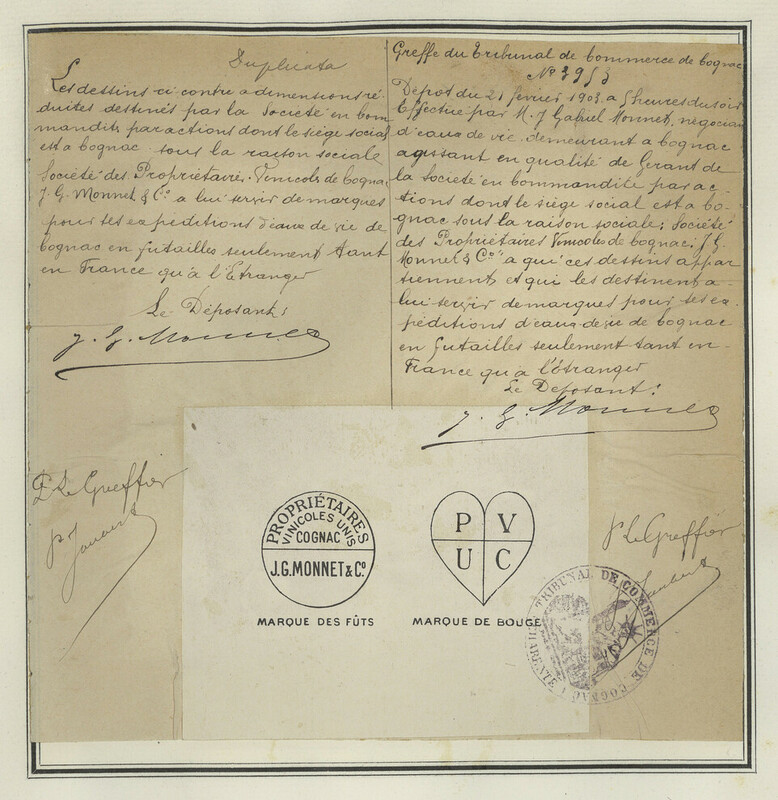 Duplicata
Les dessins ci contre a dimensions ré-
duites destinés par la Societé en com
mandite par actions dont le siège social
est a Cognac sous la raison sociale
Société des Propriétaires Vinicoles de Cognac
J. G. Monnet & Co. a lui servir de marques
pour ses expeditions d'eaux de vie de
Cognac en futailles seulement tant
en France qu'à l'Etranger
Le Déposant:
J. G. Monnet
Greffe du Tribunal de Commerce de Cognac
No 3953
Dépot du 21 fevrier 1903 a 5 heures du soir
Effectué par M. J Gabriel Monnet, négocian
d'eaux de vie demeurant a Cognac
agissant en qualité de Gerant de
la Societé en commandite par ac-
tions dont le siège social est a Co-
gnac sous la raison sociale: Société
des Propriétaires Vinicoles de Cognac: J G
Monnet & Co" a qui ces dessins appar
tiennent et qui les destinent a-
lui servir de marques pour ses ex-
péditions d'eaux de vie de Cognac
en futailles seulement tant en-
France qu'à l'étranger
Le Déposant:
J. G. Monnet
P Le Greffier
P Le Greffier
PROPRIÉTAIRES
VINICOLES UNIS
COGNAC
J.G.MONNET & Co
MARQUE DES FÛTS
P V
U C
MARQUE DE BOUGE
TRIBUNAL DE COMMERCE DE COGNAC
CHARENTE